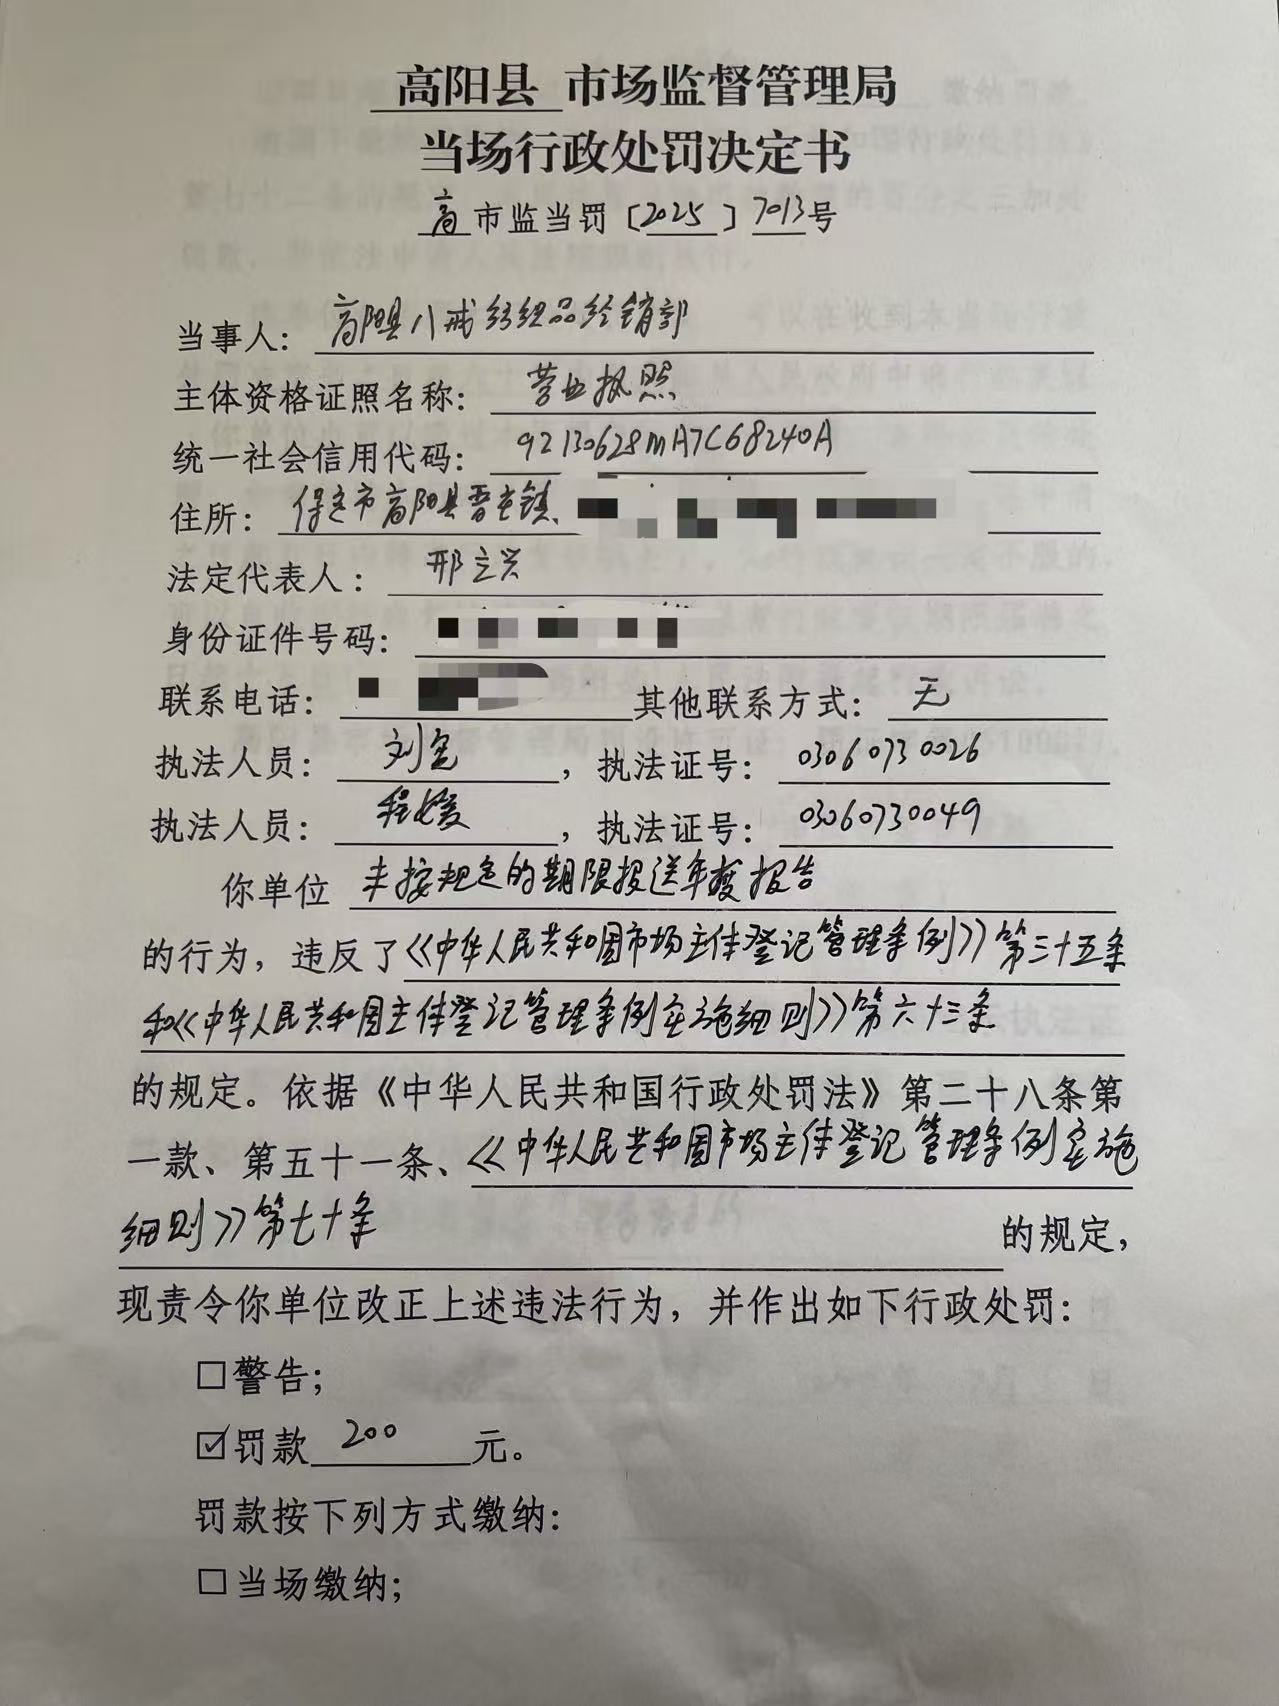 高阳县 市场监督管理局
当场行政处罚决定书
高 市监当罚〔2025〕7013号
当事人：高阳县八戒纺织品经销部
主体资格证照名称：营业执照
统一社会信用代码：92130628MA7C68240A
住所：保定市高阳县晋庄镇
法定代表人：邢立兴
身份证件号码：
联系电话： 其他联系方式：无
执法人员：刘宽，执法证号：03060730026
执法人员：程媛，执法证号：03060730049
你单位 未按规定的期限报送年度报告
的行为，违反了《中华人民共和国市场主体登记管理条例》第三十五条
和《中华人民共和国主体登记管理条例实施细则》第六十三条
的规定。依据《中华人民共和国行政处罚法》第二十八条第
一款、第五十一条、《中华人民共和国市场主体登记管理条例实施
细则》第七十条 的规定，
现责令你单位改正上述违法行为，并作出如下行政处罚：
□警告；
☑罚款 200 元。
罚款按下列方式缴纳：
□当场缴纳；